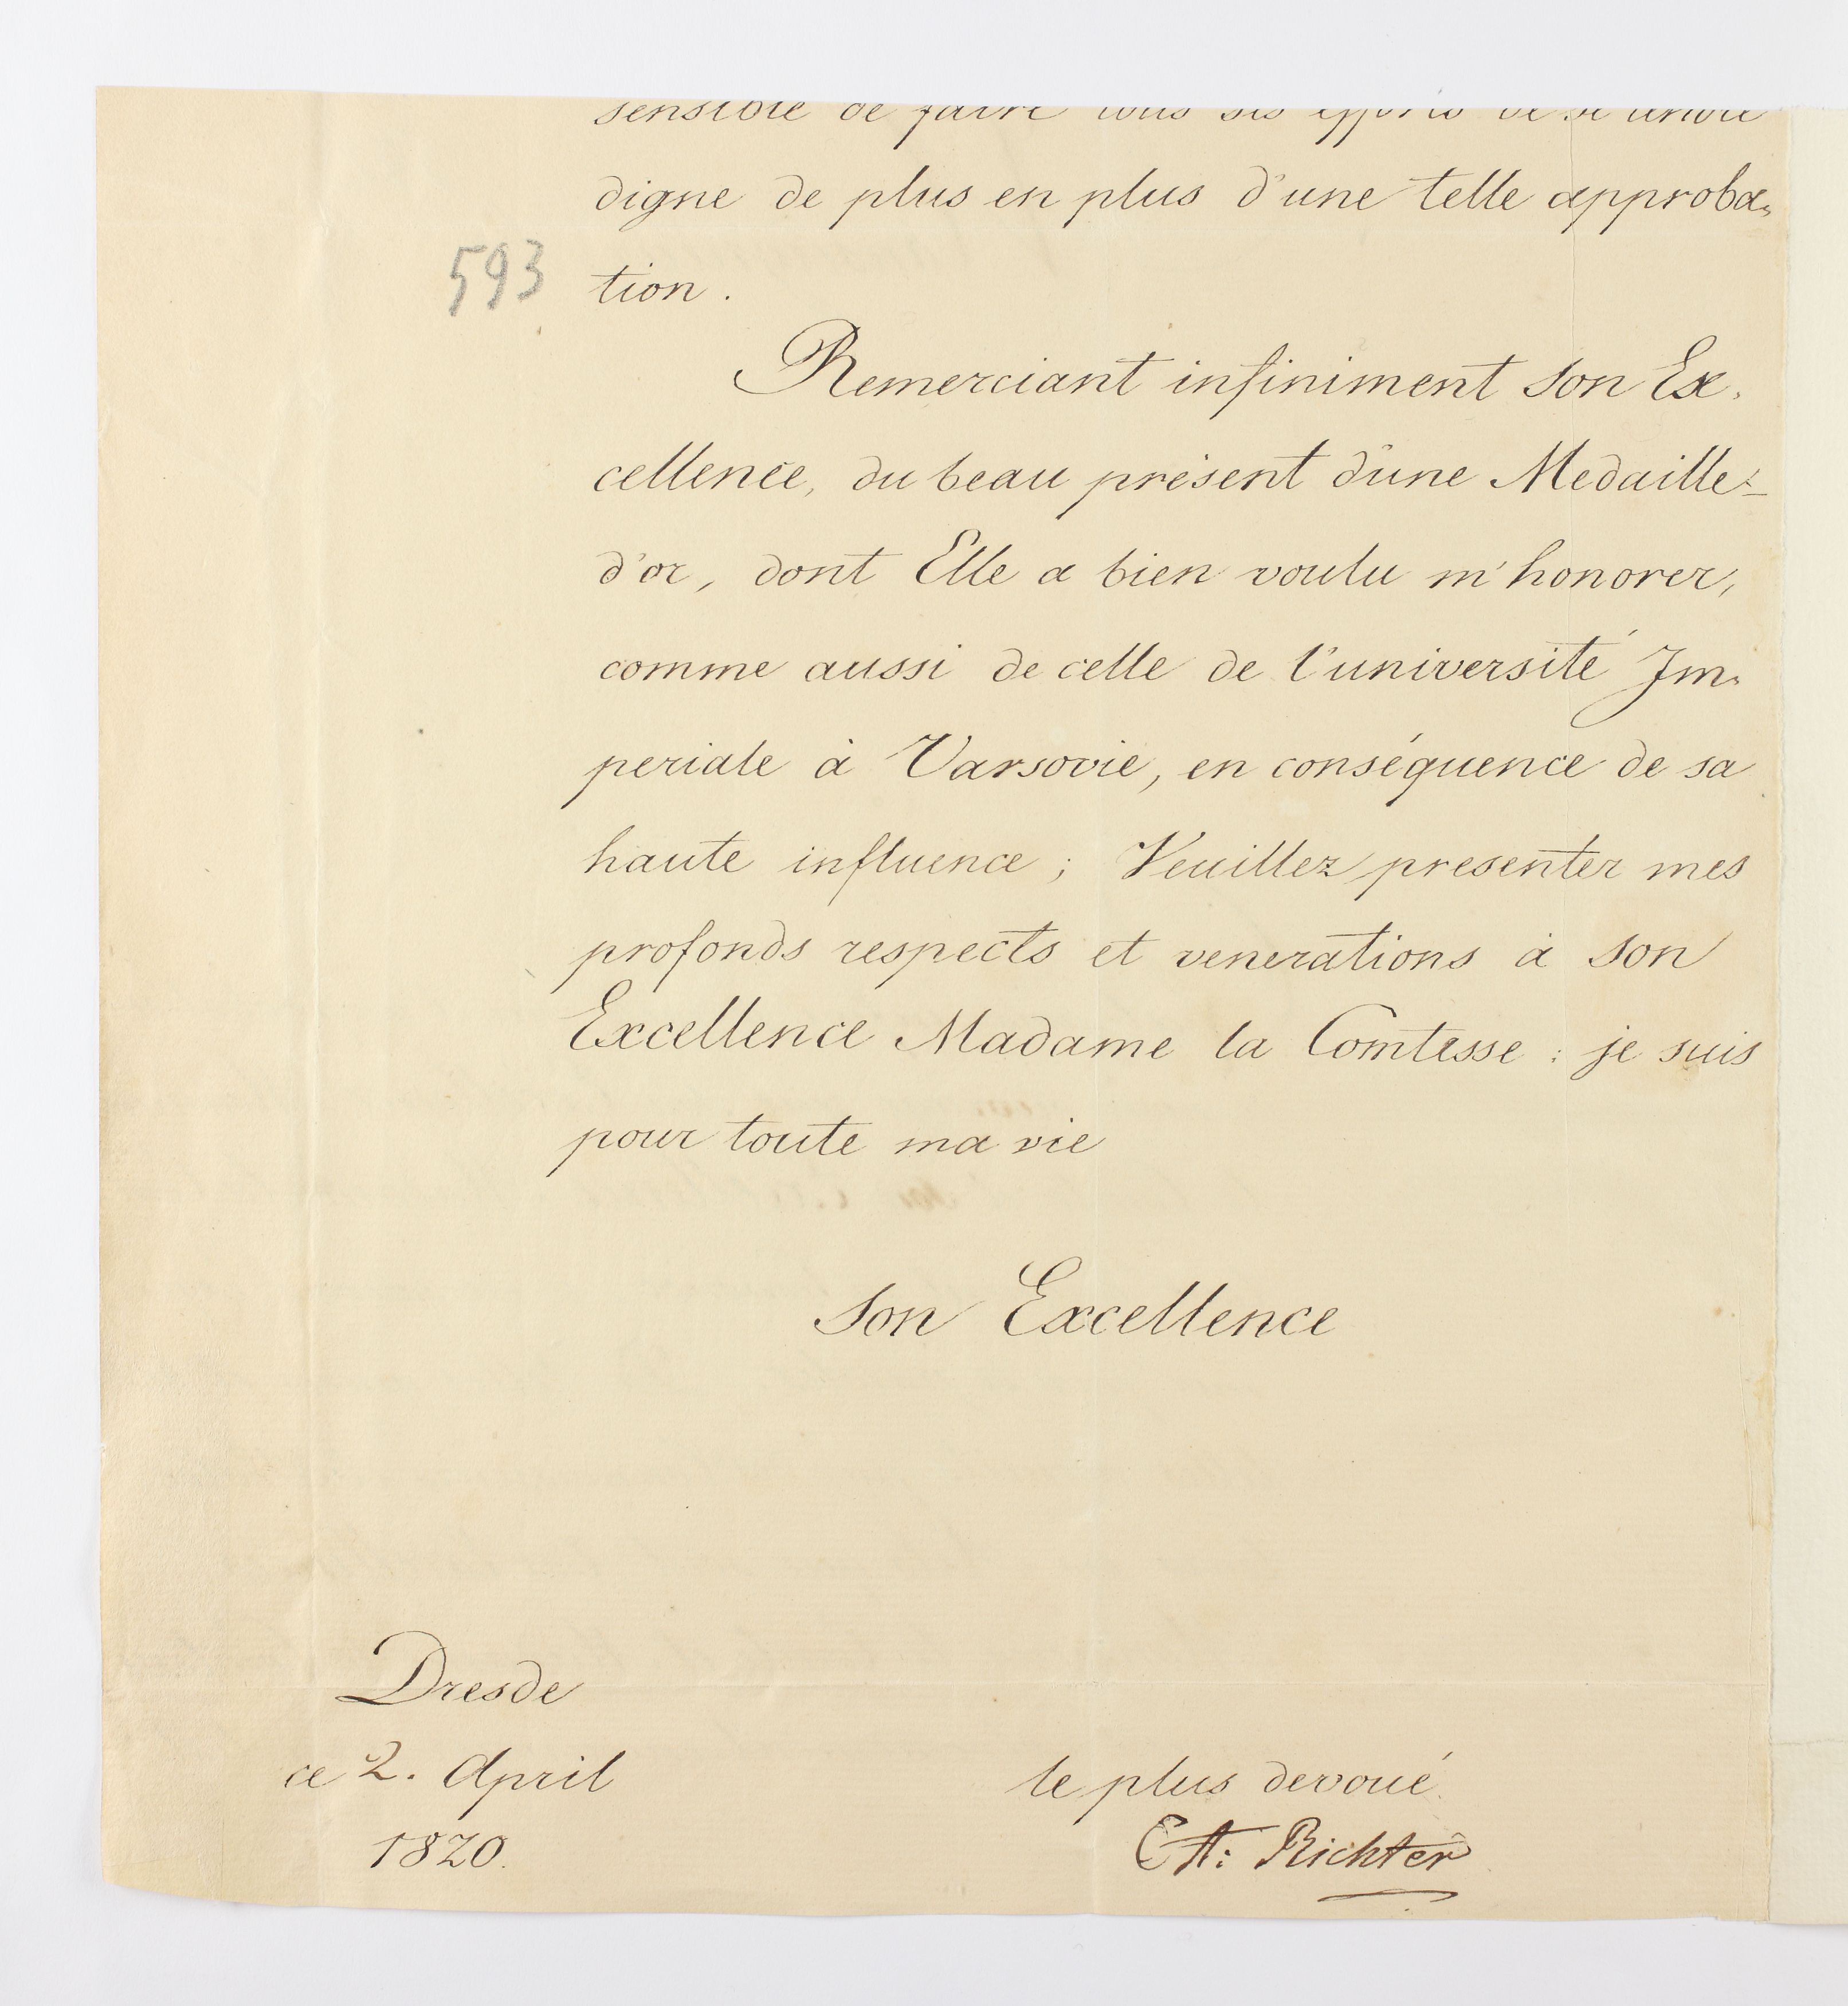 sensible de faire tous ses efforts de se rendre
digne de plus en plus d'une telle approba-
593 tion.
Remerciant infiniment Son Ex-
cellence, du beau présent d'une Medaille-
d'or, dont Elle a bien voulu m'honorer,
comme aussi de celle de l'université Im-
periale à Varsovie, en conséquence de sa
haute influence; Veuillez presenter mes
profonds respects et venerations à Son
Excellence Madame la Comtesse: je suis
pour toute ma vie
Son Excellence
Dresde
ce 2. April
1820.
le plus devoué
Richter